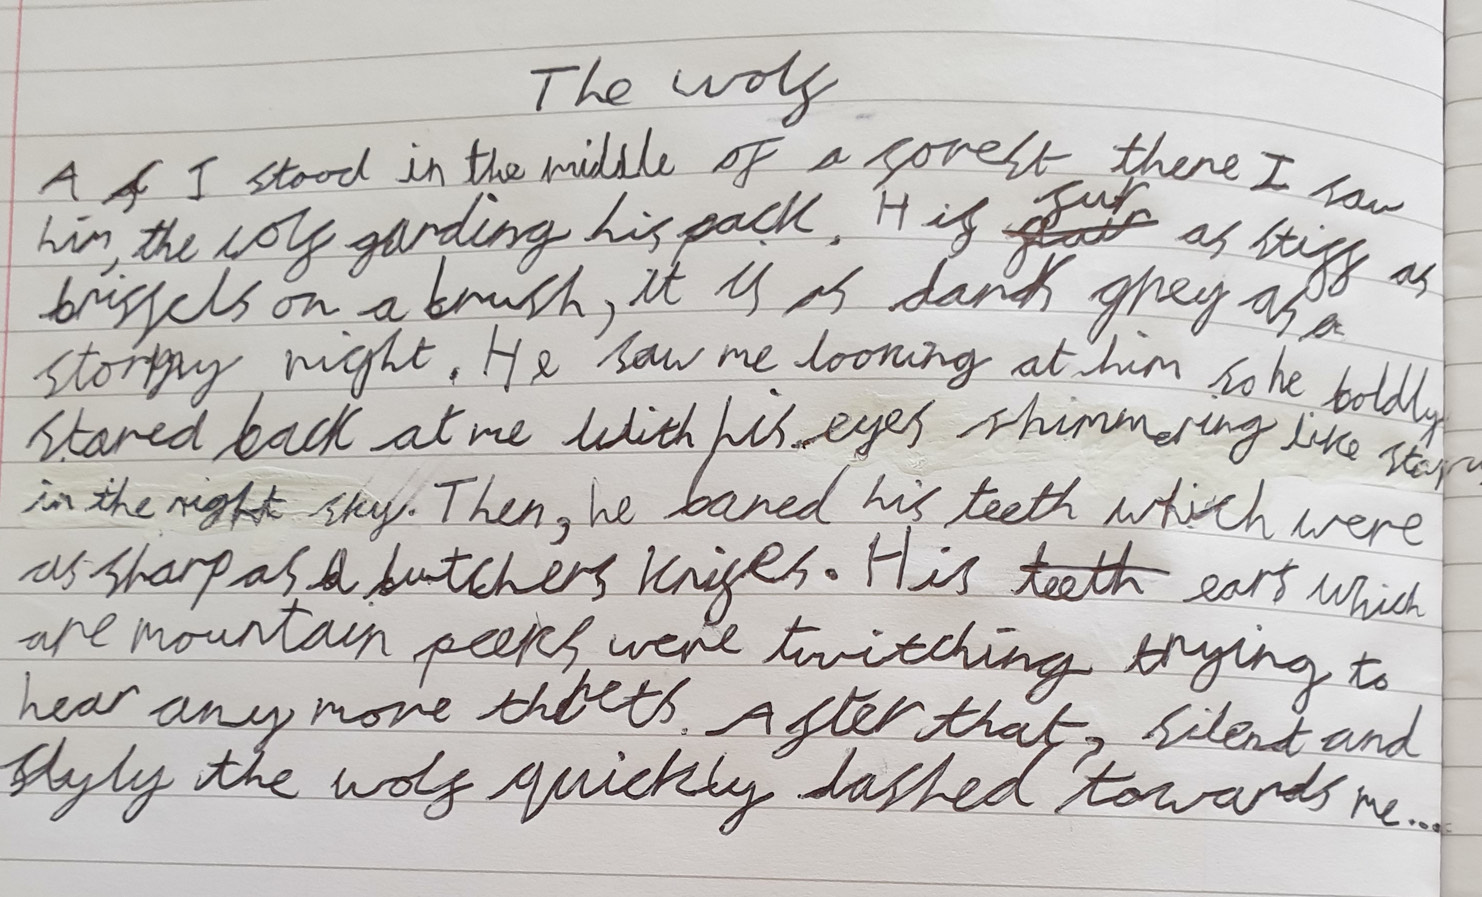 The wolf
A I stood in the middle of a forest there I saw
him, the wolf garding his pack. His fur as stiff as
brissels on a brush, it is as dark grey as a
stormy night. He saw me looking at him so he boldly
stared back at me with his eyes shimmering like stars
in the night sky. Then, he bared his teeth which were
as sharp as a butchers knifes. His teeth ears which
are mountain peeks were twitching trying to
hear any more threts. After that, silent and
slyly the wolf quickly dashed towards me...